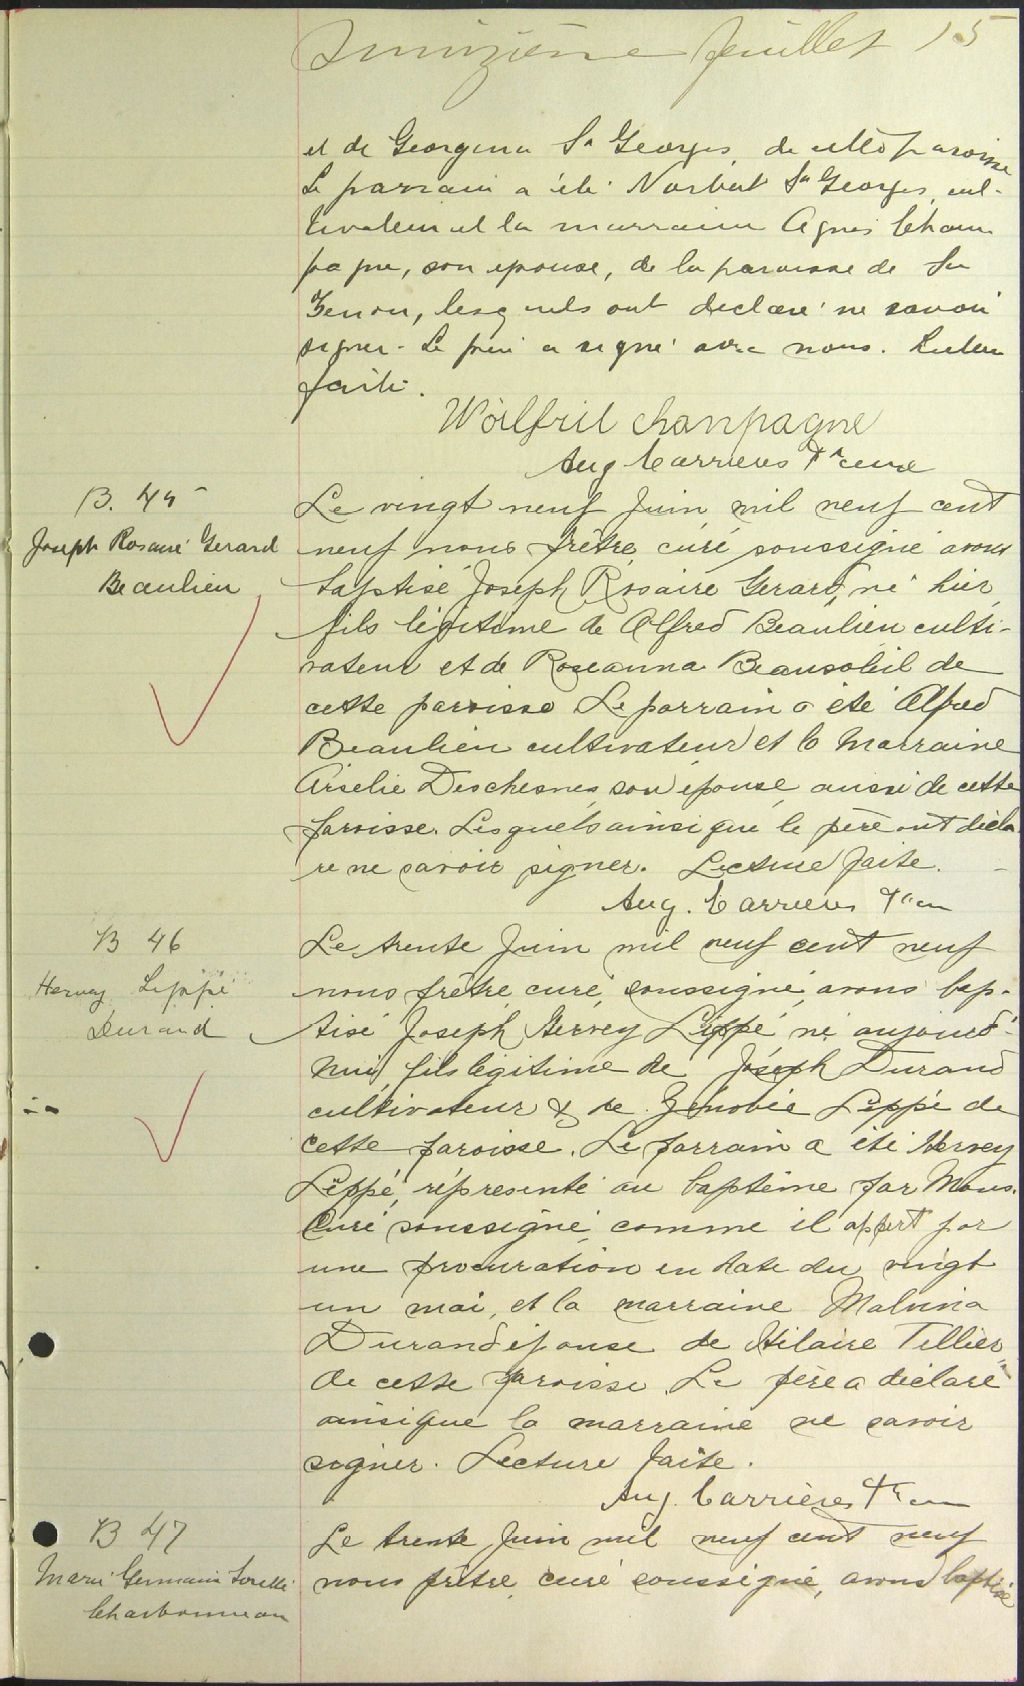 Quinzième feuillet 15
et de Georgina St Georges, de cette paroisse
Le parrain a été Norbert St Georges, cul-
tivateur et la marraine Agnès Cham
pagne, son épouse, de la paroisse de St
Zenon, lesquels ont déclaré ne savoir
signer. Le père a signé avec nous. Lecture
faite.
Wilfril champagne
Aug Carrières Ptre curé
B. 45
Joseph Rosaire Gerard
Beaulieu
Le vingt neuf Juin mil neuf cent
neuf nous prêtre, curé soussigné avons
baptisé Joseph Rosaire Gerard, né hier
fils légitime de Alfred Beaulieu culti-
vateur et de Roseanna Beausoleil de
cette paroisse Le parrain a été Alfred
Beaulieu cultivateur et la marraine
Deschesnes, son épouse, aussi de cette
paroisse. Lesquels ainsi que le père ont décla
ré ne savoir signer. Lecture faite.
Aug. Carrières Ptre cu
B 46
Hervey Lippé
Durand
Le trente Juin mil neuf cent neuf
nous prêtre, curé, soussigné, avons bap-
tisé Joseph Hervey Lippé né aujourd'-
hui, fils légitime de Joseph Durand
cultivateur & de Zénobie Lippé de
cette paroisse. Le parrain a été Hervey
Lippé, réprésenté au baptême par Mons.
Curé soussigné, comme il appert par
une procuration en date du vingt
un mai, et la marraine Malvina
Durand épouse de Hilaire Tellier
de cette paroisse. Le père a déclaré
ainsi que la marraine ne savoir
signer. Lecture faite.
Aug. Carrières Ptre cu
B 47
Marie Germaine
Charbonneau
Le trente Juin mil neuf cent neuf
nous prêtre, curé soussigné, avons baptisé